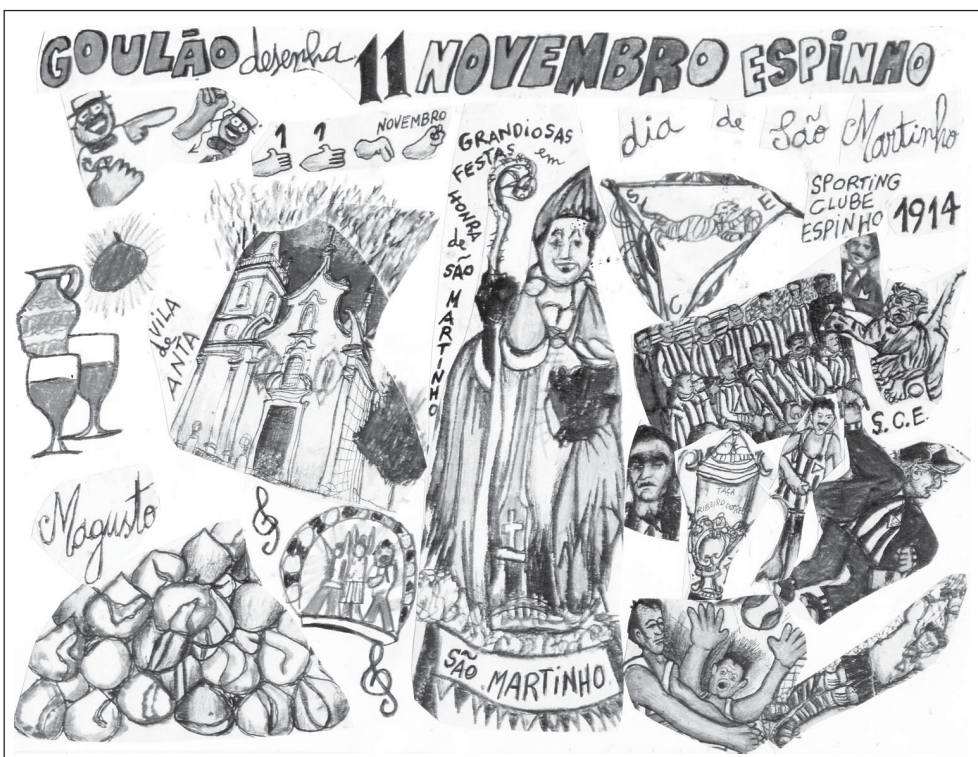 GOULÃO desenha 11 NOVEMBRO ESPINHO
1 1 NOVEMBRO
GRANDIOSAS
FESTAS em
HONRA de SÃO MARTINHO
dia de São Martinho
S E
C
SPORTING
CLUBE
ESPINHO 1914
VILA
de
ANTA
S.C.E.
TAÇA
RIBEIRO
Magusto
SÃO MARTINHO.